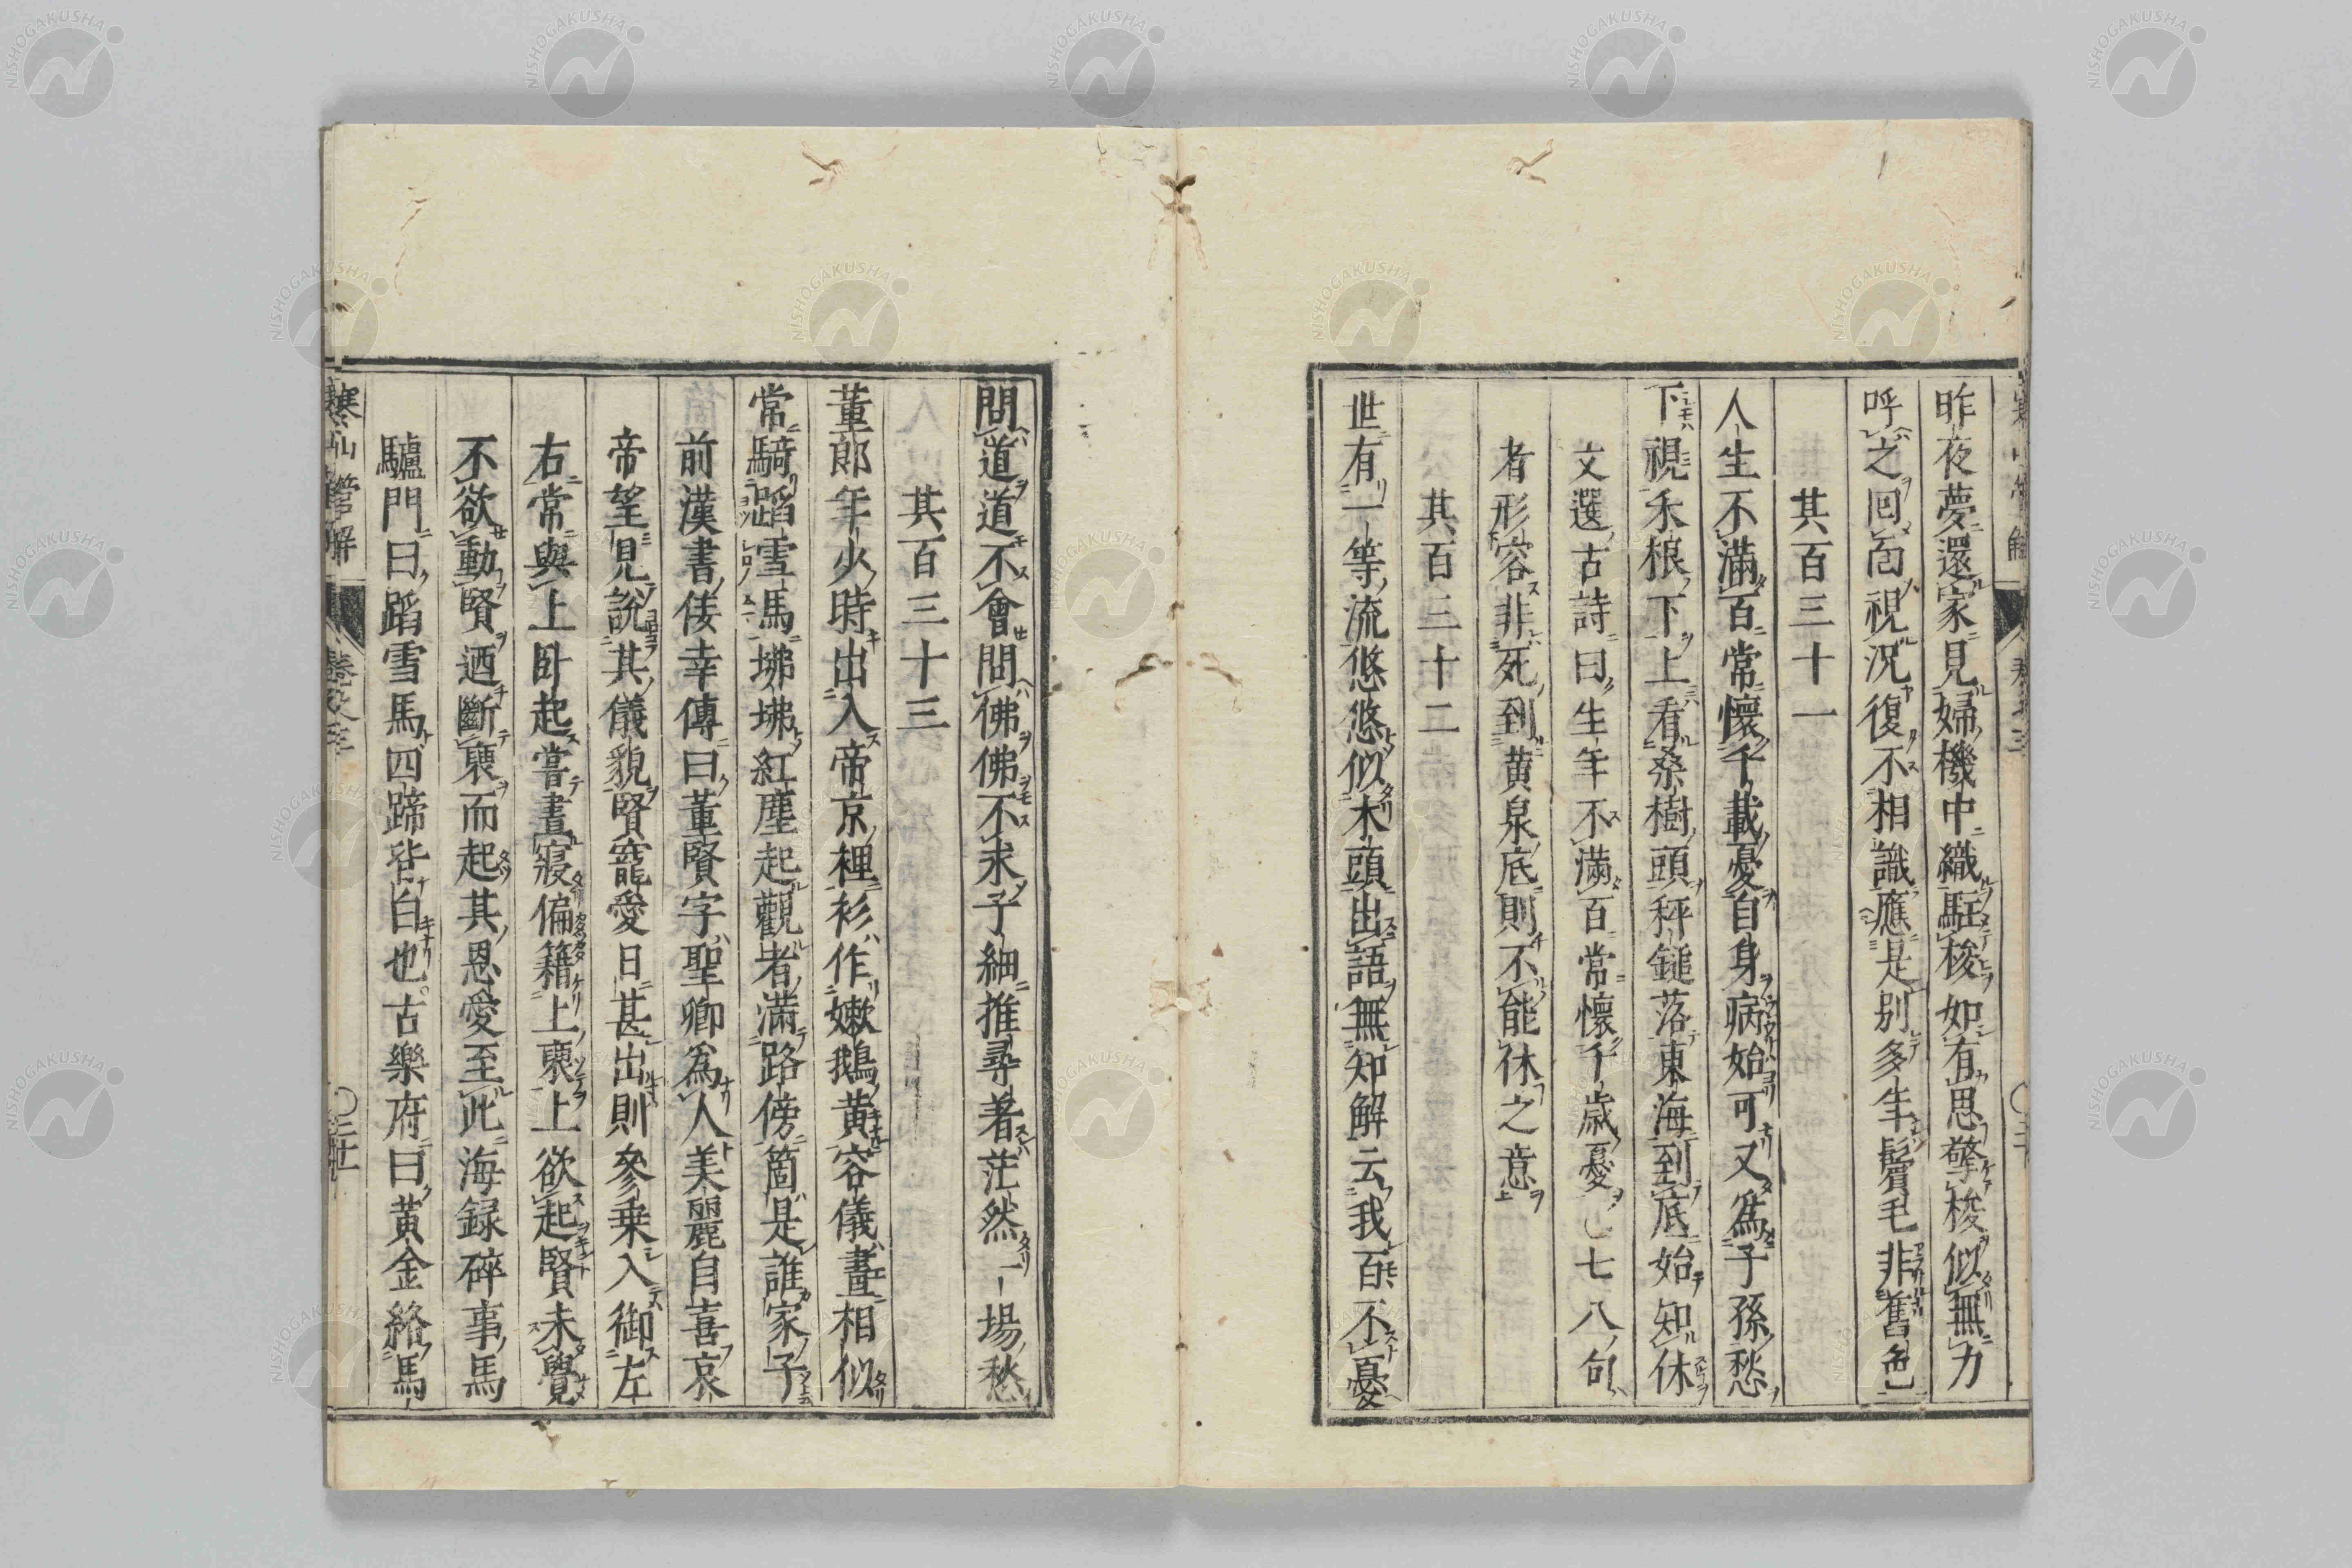 昨夜夢還家見婦機中織駐梭如有思擎梭似無力
呼之回面視況復不相識應是別多年鬢毛非舊色
其百三十一
人生不滿百常懷千載憂自身病始可又爲子孫愁
下視禾根下上看桑樹頭秤鎚落東海到底始知休
文選古詩曰生年不滿百常懷千歲憂○七八句
者形容非死到黄泉底則不能休之意
其百三十二
世有一等流悠悠似木頭出語無知解云我百不憂
問道道不會問佛佛不求子細推尋著茫然一場愁
其百三十三
董郎年少時出入帝京裡衫作嫩鵝黄容儀畫相似
常騎蹈雪馬拂拂紅塵起觀者滿路傍箇是誰家子
前漢書佞幸傳曰董賢字聖卿爲人美麗自喜哀
帝望見說其儀貌賢寵愛日甚出則參乗入御左
右常與上卧起嘗晝寢偏籍上褏上欲起賢未覺
不欲動賢迺斷褏而起其恩愛至此海録碎事馬
驢門曰蹈雪馬四蹄皆白也古樂府曰黄金絡馬
寒山管解
卷之三